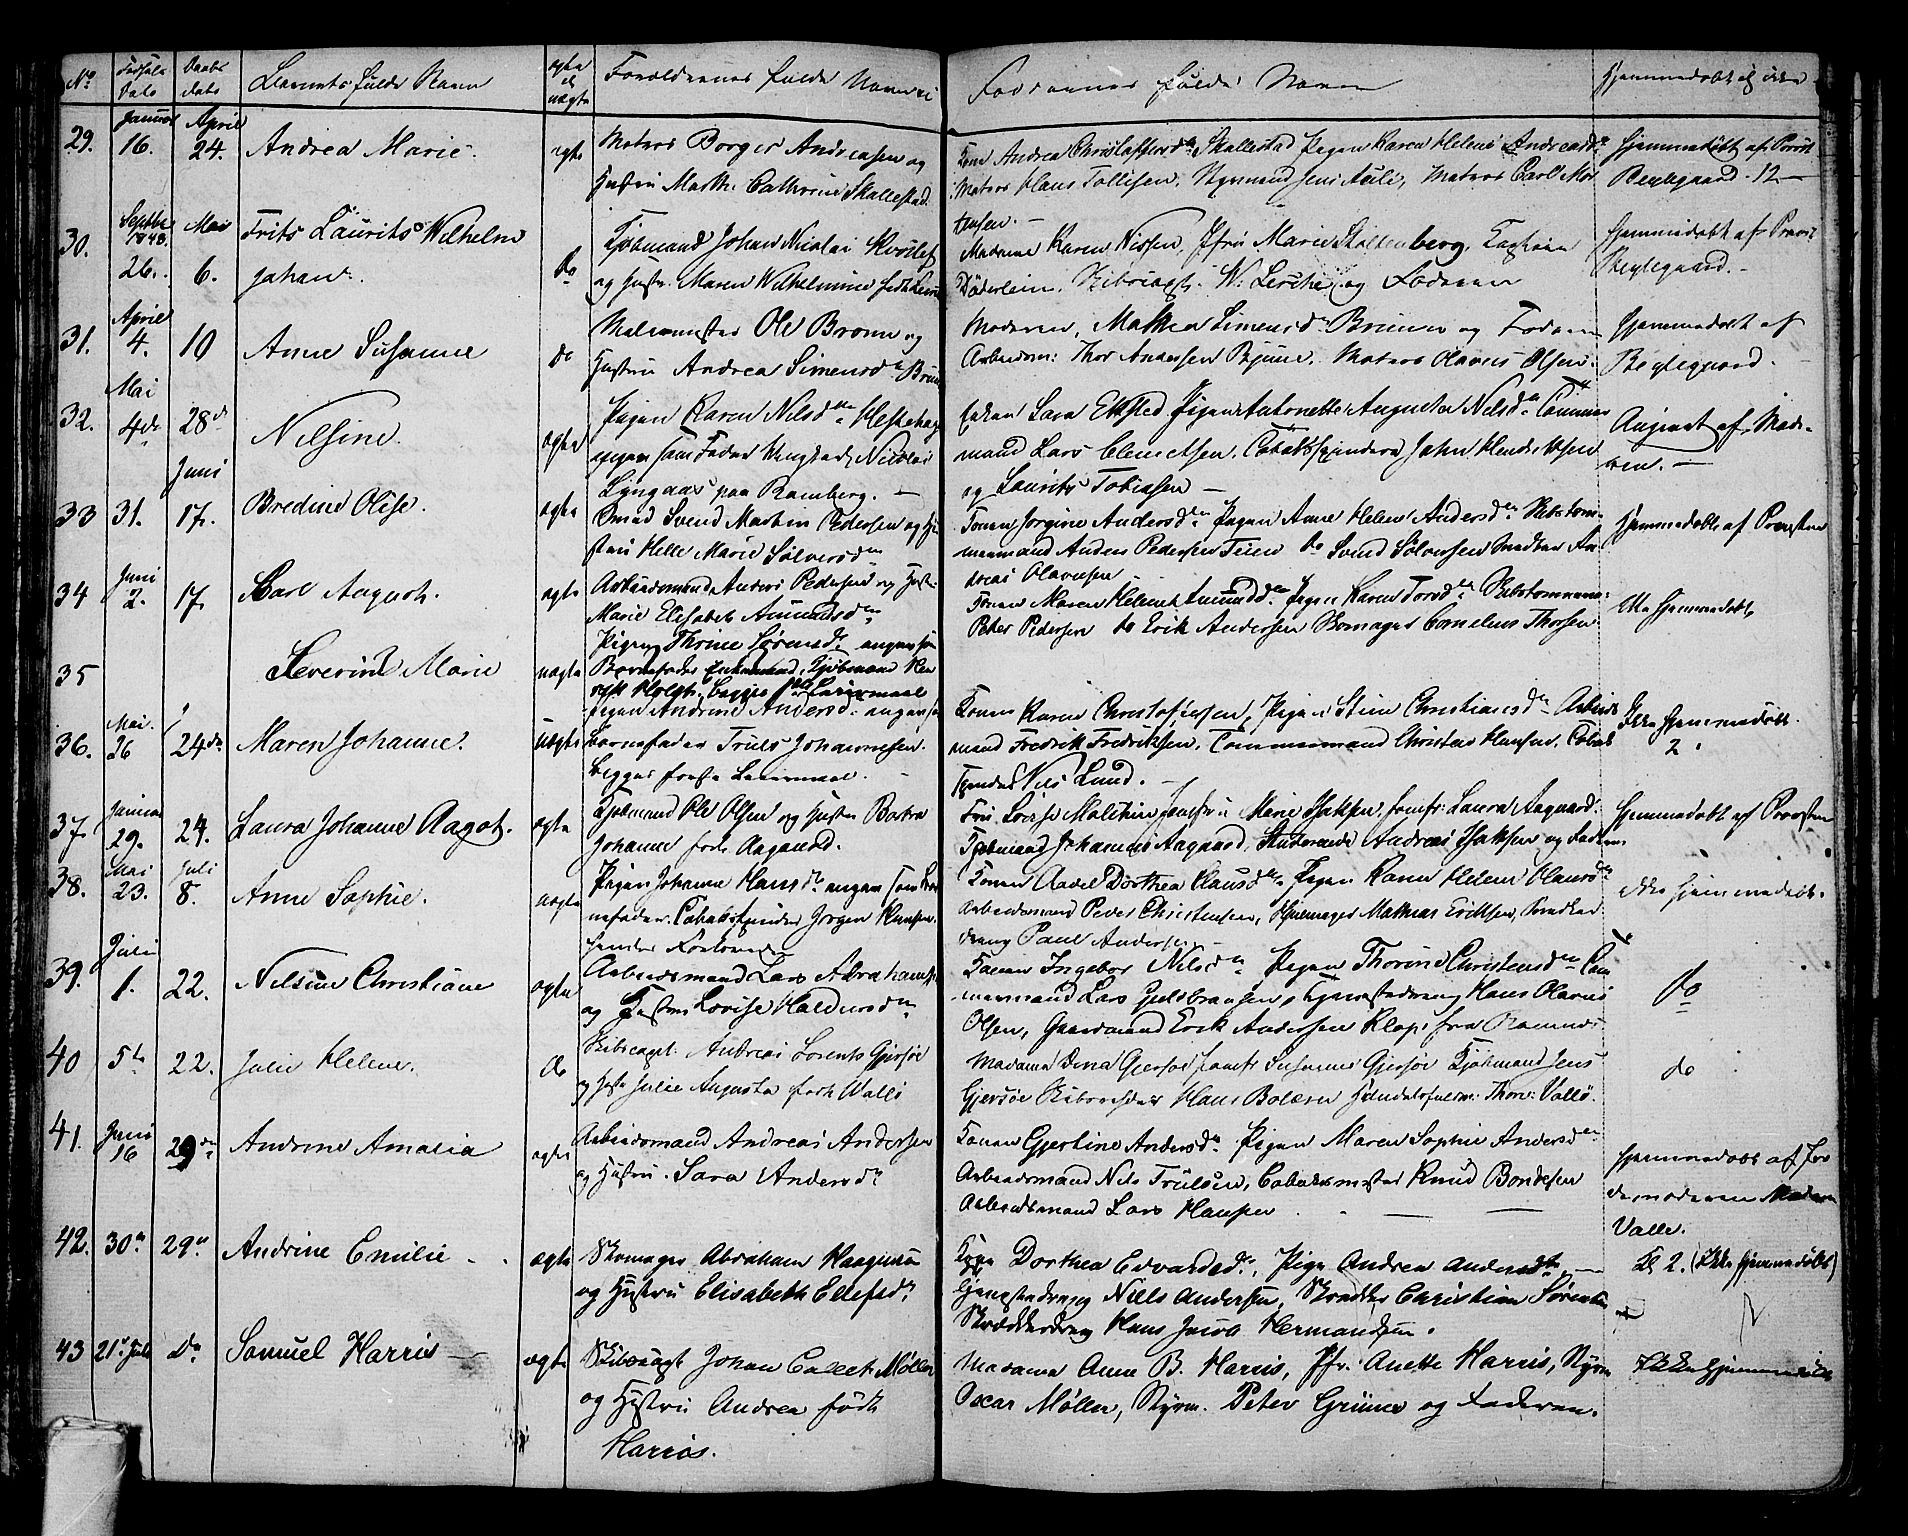 No Fødsels Dato Daabs dato Barnets fulde Navn ægte el uægte Forældrenes fulde Navne Faddernes fulde Navne Hjemmedøbt el ikke
29. Januar 16. April 24. Andrea Marie. ægte Matros Borger Andreasen og
Hustru Marthe Cathrine Skallestad.
Kone Andrea Christophersdr Skallestad Pigen Karen Helene Andreasdr
Matros Hans Tollifsen, Styrmand Jens Aule, Matros Carl Mor
tensen. —
Hjemmedøbt af Provst
Beglegaard. 12 —
30. Septbr 1848. 26. Mai 6. Frits Laurits Wilhelm
Johan.
do Kjøbmand Johan Nicolai
og Hustr. Maren Wilhelmine født
Madame Karen Nissen, Jfru Marie Stoltenberg, Captain
Døderlein. Skibscapt. W. Lerche og Faderen
Hjemmedøbt af Provst
Beglegaard. -
31. April 4. 10 Anne Susanne do Ole Bruun og
Hustru Andrea Simensdr Bruun
Moderen, Mathea Simensdr Bruun og Faderen
Arbeidsm: Thor Andersen Matros Olaves Olsen.
Hjemmedøbt af
Beglegaard.
32. Mai 4de 28de Nilsine. uægte Pigen Karen Nilsdtr Hestehag
angiven som Fader Ungkarl Nicolai
Lyngaas paa Ramberg. —
Enken Sara Eksted Pigen Antonette Augusta Nilsdr Tømmer
mand Lars Clemetsen. Tobakspinder John Hendriksen
og Laurits Tobiasen —
Angivet af Mode-
ren. —
33 31. Juni 17. Bredine Olise. ægte Smed Svend Martin Pedersen og Hu
stru Helle Marie Sølversdr
Konen Jorgine Andersdtr Pigen Anne Helene Andersdtr Skibstøm-
mermand Anders Pedersen Teien do Svend Sølversen An
dreas Olavesen
Hjemmedøbt af Provsten
34 Juni 2. 17. Carl August. ægte Arbeidsmand Anders Pedersen og Hust.
Marie Elisabeth Amundsdr
Konen Maren Helene Amundsdr. Pigen Karen Torsdr Skibstømmerm:
Peter Pedersen do Erik Andersen Cornelius Thorsen
Ikke hjemmedøbt,
35 Severine Marie uægte Pigen Thrine Sørensdr angiven som
Barnefader Enkemand, Kjøbmand Hen
rik Holst. Begges Leiermaal
36. Mai. 26 24de Maren Johanne. uægte Pigen Andrine Andersdr angiven som
barnefader Truls Johannesen.
begges første Leiermaal. -
Konen Karen Christofersen, Pigen Stine Christiansdr Arbeids
mand Fredrik Fredriksen, Tømmermand Christen Hansen. Tobaks
spinder Nils Lund. —
Ikke hjemmedøbt.
2.
37. Januar 29. 24. Laura Johanne Aagot. ægte Kjøbmand Ole Olsen og Hustru
Johanne født Aagaard.
Kjøbmand Johannes Aagaard, Studerende Andreas og Faderen
Hjemmedøbt af Provsten
38. Mai 23. Juli 8. Anne Sophie. uægte Pigen Johanne Hansdr angav som Bar
nefader Tobakspinder Jørgen Hansen.
hendes Forlovede
Konen Aavel Dorthea Clausdtr Pigen Karen Helene Olausdr
Arbeidsmand Peder Christensen, Mathias Eriksen, Snedker
dreng Paul Andersen —
ikke hjemmedøbt.
39. Juli 1. 22. Nilsine Christiane ægte Arbeidsmand Lars Abrahamsen
og Hustru Lovise Haldorsdr
Konen Ingebor Nilsdr Pigen Thorine Christensdtr Tøm
mermand Lars Gulbransen, Tjenestedreng Hans Olaves
Olsen, Gaardmand Erik Andersen Klop fra Ramnes
do
40 5te 22. Julie Helene. do Skibscapt. Andreas Lorents Gjersøe
og Hustr Julie Augusta født Walløe
Madame Dina Gjersøe Jomfr Susanne Gjersøe Kjøbmand Jens
Gjersøe Hans Bolærn Handelsfuldm: Thor: Valløe.
do
41. Juni 16 29de Andrine Amalia ægte Arbeidsmand Andreas Andersen
og Hustru. Sara Andersdr
Konen Gjertine Andersdr Pigen Maren Sophie Andersdtr
Arbeidsmand Nils Trulsen, Knud Bondesen
Arbeidsmand Lars Hansen — —
Hjemmedøbt af Jor
demoderen Madam
Valle.
42. 30te 29de Andrine Emilie ægte Skomager Abraham Haagensen
og Hustru Elisabeth Ellefsdr
Kone Dorthea Edvardsdr, Pige Andrea Andersdtr —
Tjenestedreng Niels Andersen, Skrædder Christian Sørensen
Skrædderdreng Hans Jacob Hermandsen.
Kl 2. (Ikke hjemmedøbt)
43 21de Juli do Samuel Harris — ægte Skibscapt Johan Calles Møller
og Hustru Andrea født
Harris.
Madame Anne B. Harris, Jfr. Anette Harris, Styrm
Oscar Møller, Styrm. Peter Grüner og Faderen.
Ikke hjemmedøbt